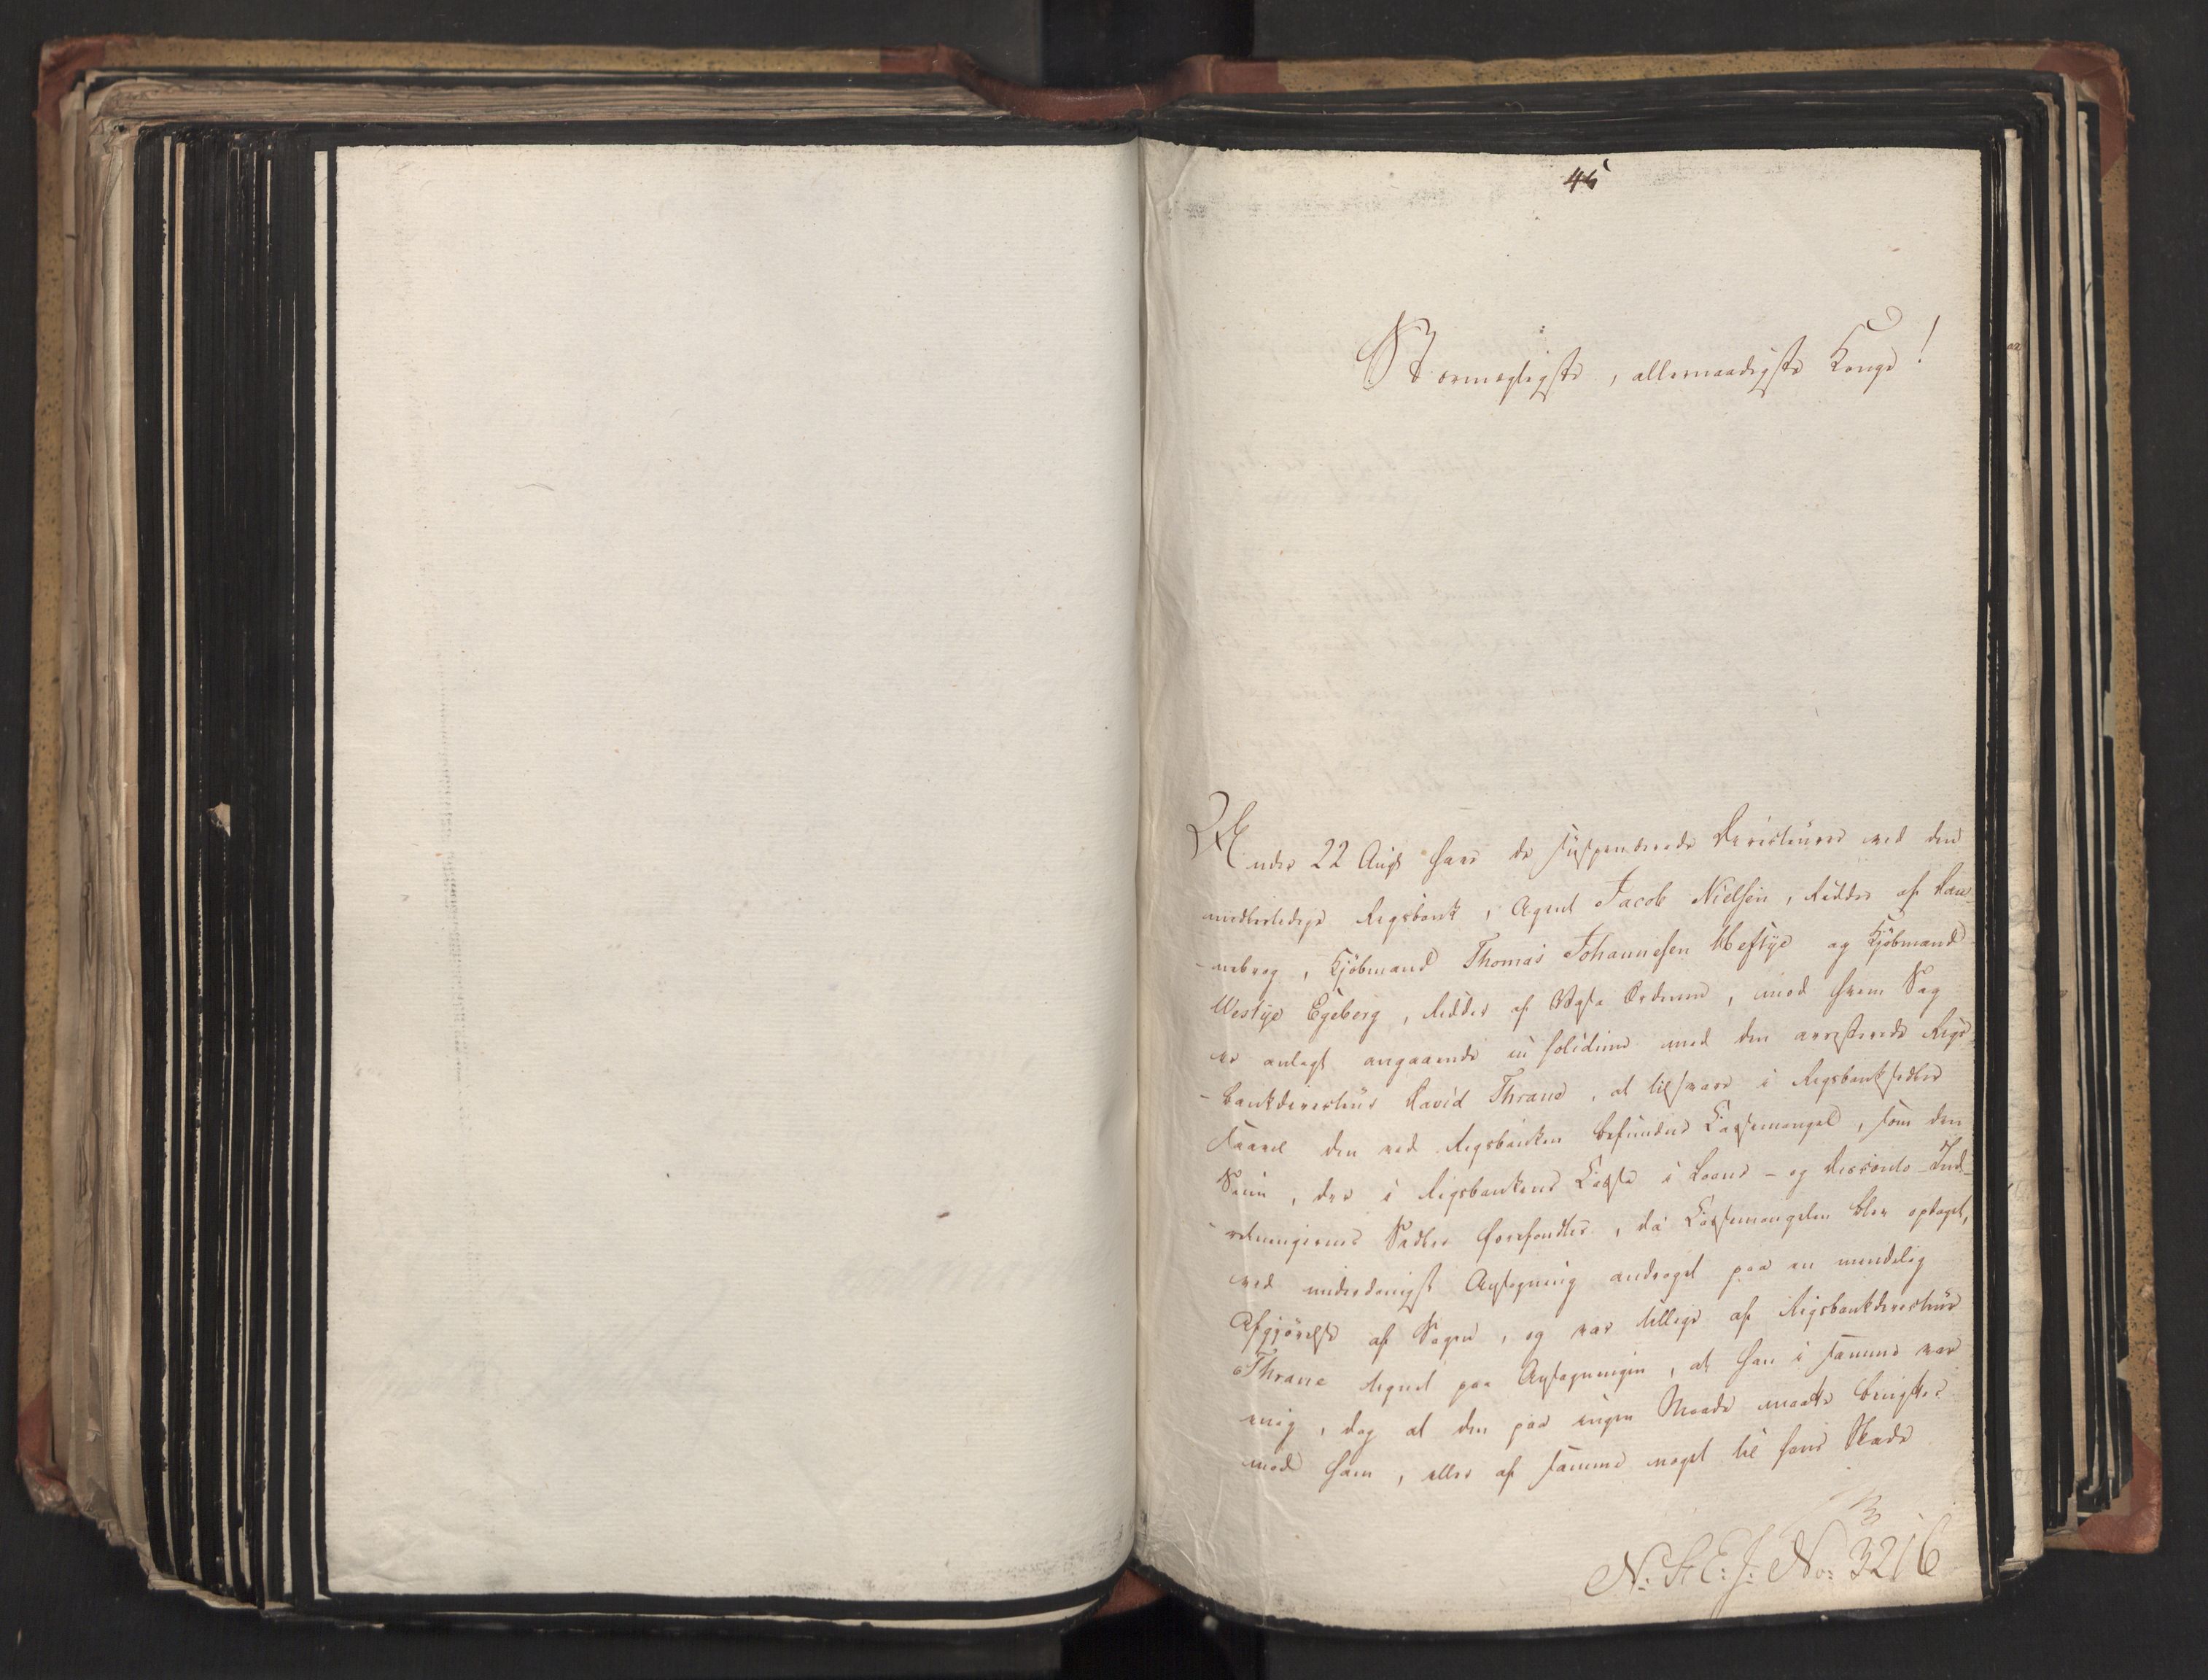 46
Stormægtigste, allernaadigste Konge!
Under 22 Augs have de suspenderede Directeurer ved den
midlertidige Rigsbank, Agent Jacob Nielsen, Ridder af Dan-
-nebrog, Kjöbmand Thomas Johannesen Heftÿe og Kjöbmand
Westÿe Egeberg, Ridder af Wasa Ordenen, mod hvem Sag
er anlagt angaaende in solidum med den arresterede Rigs-
-bankdirecteur David Thrane, at tilsvare i Rigsbanksedler
saavel den ved Rigsbanken befundne Cassemangel, som den
Sum, der i Rigsbankens Casse i Laane- og Disconto-Ind-
-retningernes Sedler forefandtes, da Cassemangelen blev opdaget,
ved underdanigst Ansøgning andraget paa en mindelig
Afgjörelse af Sagen, og var tillige af Rigsbankdirecteur
Thrane tegnet paa Ansøgningen, at han i samme var
enig, dog at den paa ingen Maade maatte benyttes
mod ham, eller af samme noget til hans Skade
N: St: E: J: No: 3216